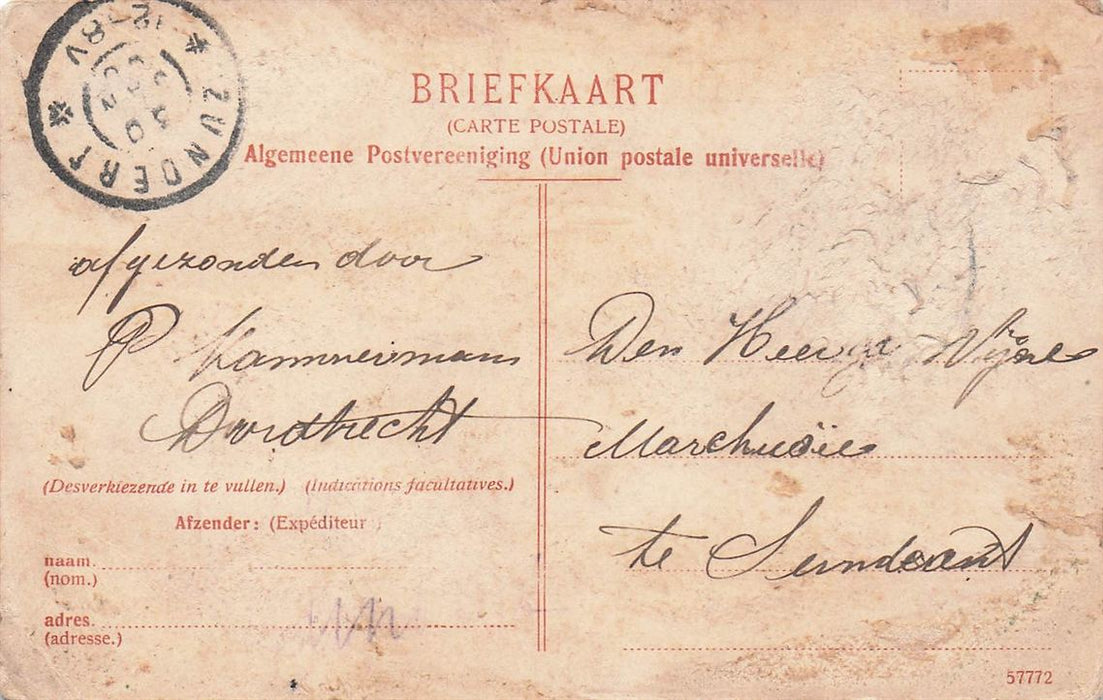 BRIEFKAART
(CARTE POSTALE)
Algemeene Postvereeniging (Union postale universelle)
ZUNDERT
12-8V
afgezonden door
P Kammermans
Dordtrecht
(Desverkiezende in te vullen.) (Indications facultatives.)
Afzender: (Expéditeur)
naam.
(nom.)
adres.
(adresse.)
Den Heer
te
57772